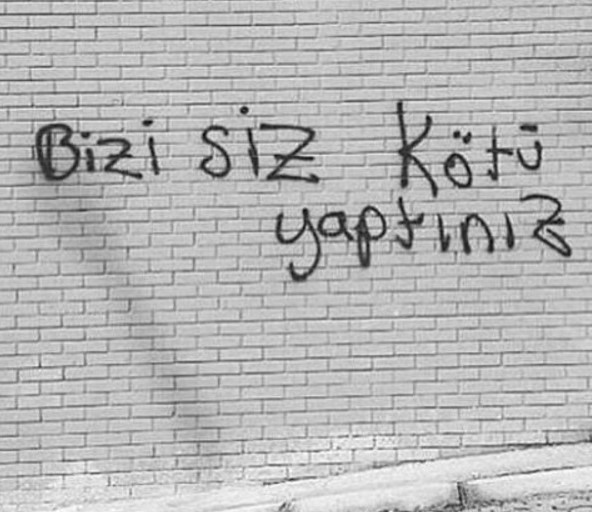 Bizi siz kötü
yaptınız